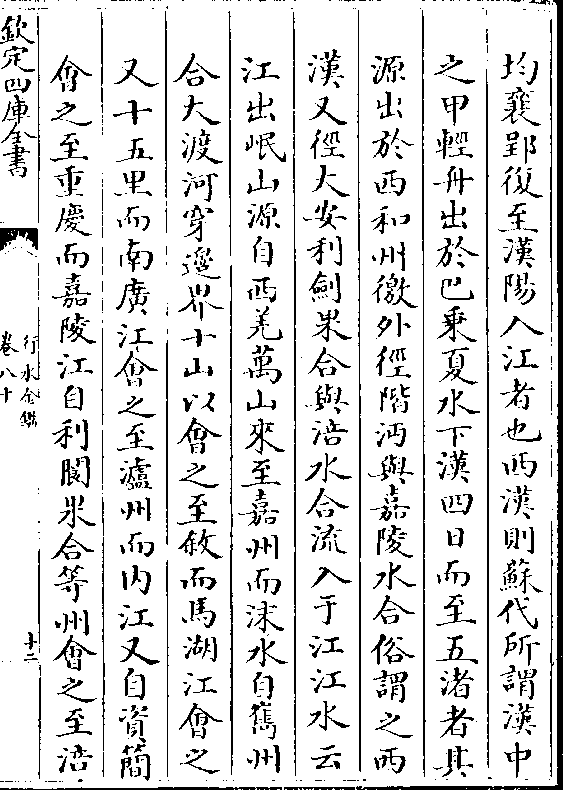 均襄郢復至漢陽入江者也西漢則蘇代所謂漢中
之甲輕舟出於巴乗夏水下漢四日而至五渚者其
源出於西和州徼外徑階沔與嘉陵水合俗謂之西
漢又徑大安利劍果合與涪水合流入于江江水云
江出岷山源自西羌萬山來至嘉州而沬水自嶲州
合大渡河穿邊界十山以㑹之至敘而馬湖江㑹之
又十五里而南廣江㑹之至瀘州而内江又自資簡
㑹之至重慶而嘉陵江自利閬果合等州㑹之至涪
欽定四庫全書
行水金鑑
卷八十
十二